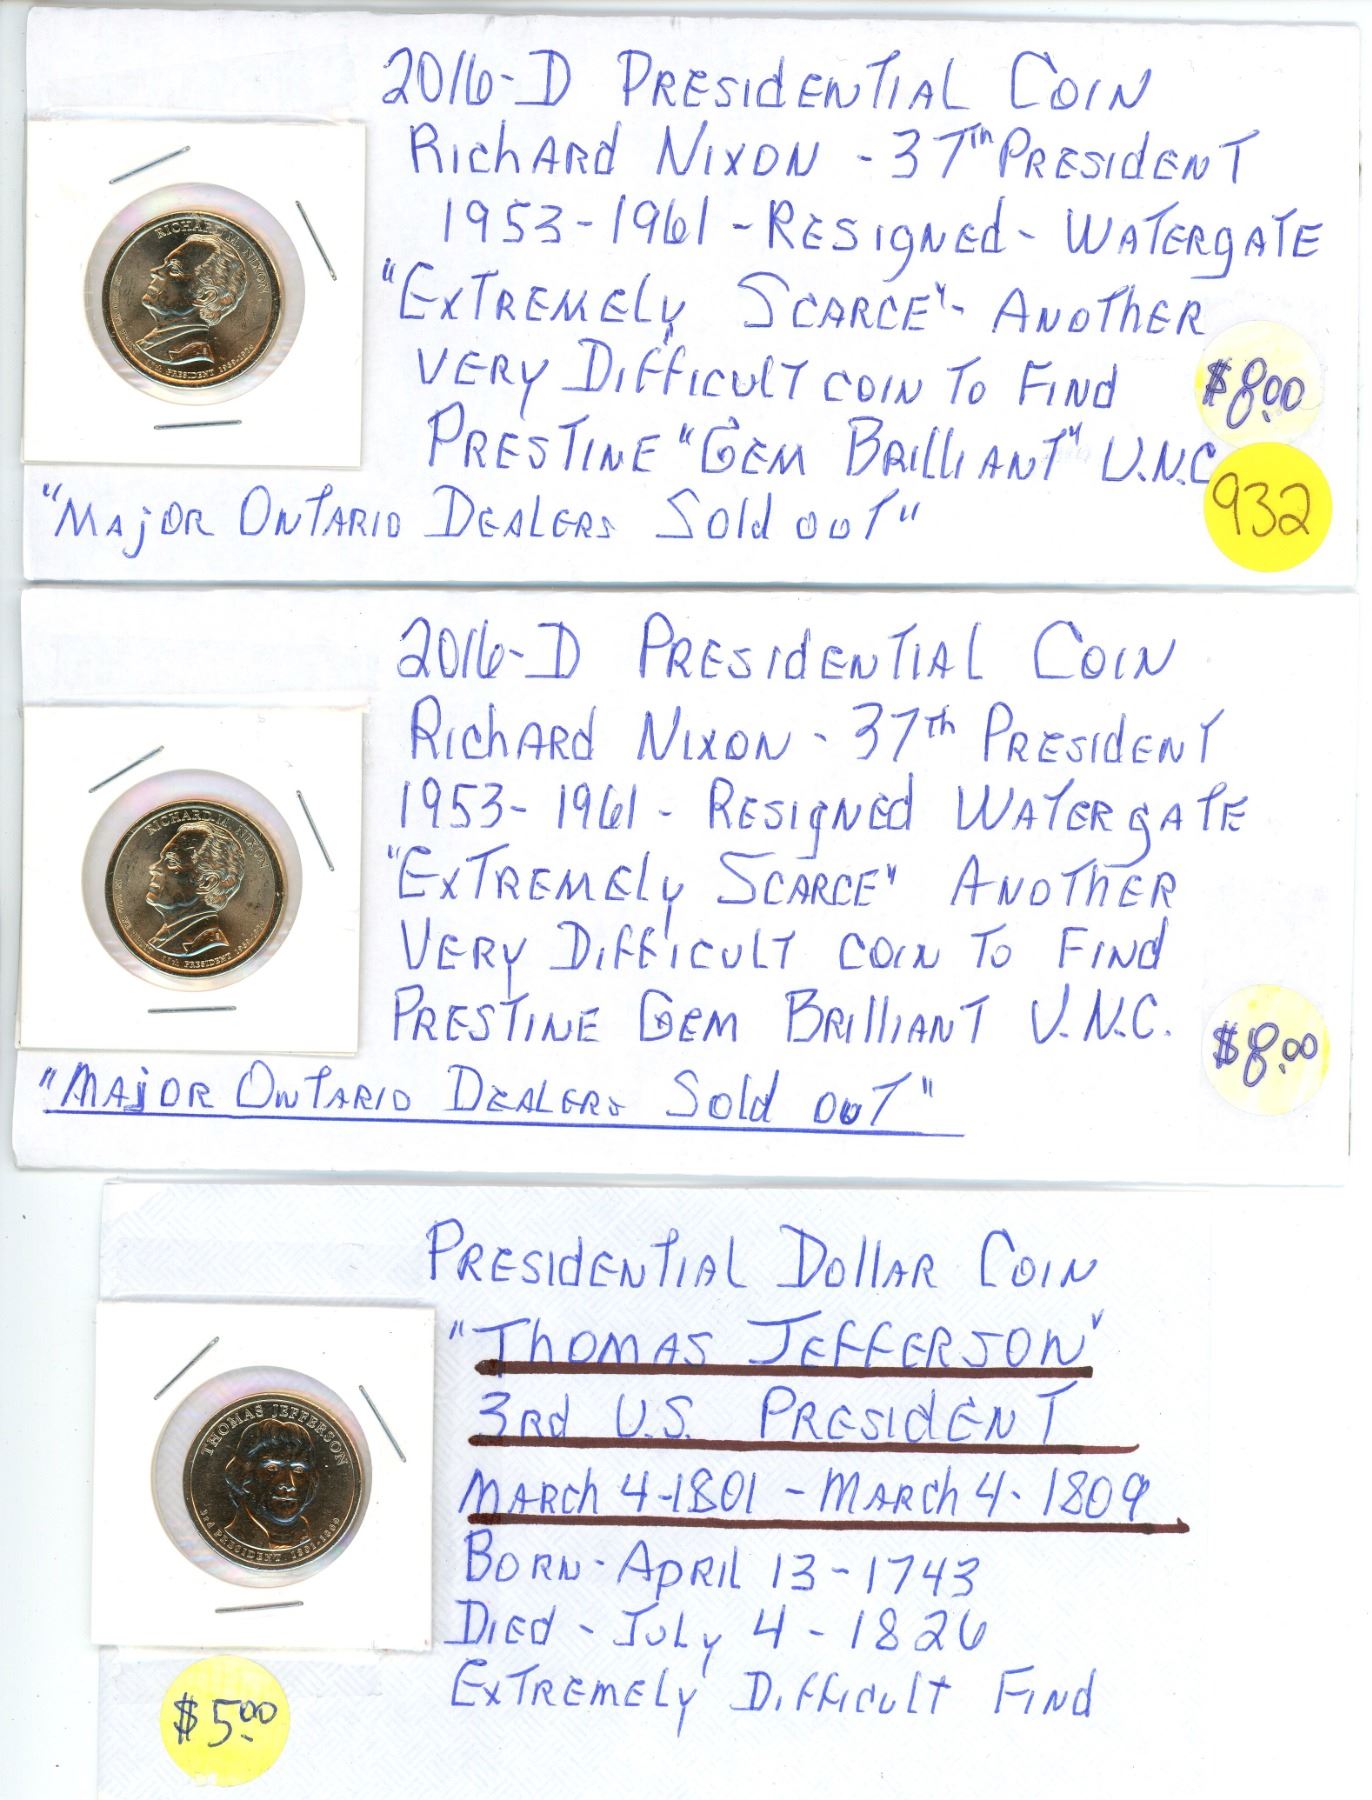 2016-D PRESIdENTIAL COIN
RIchARd NIXON - 37Th PRESIdENT
1953-1961 - RESIgNEd - WATERgATE
"ExTREMELy SCARCE" - ANOThER
VERY DIFFICULT COIN TO FINd
PRESTINE "GEM BRILLIANT" U.N.C
"MAjOR ONTARIO DEALERS SOld OUT"
$8.00
932
RICHARD M. NIXON
37th PRESIDENT 1969-1974
2016-D PRESIdENTIAL COIN
RIchARd NIXON - 37th PRESIdENT
1953-1961 - RESIgNEd WATERgATE
"ExTREMELy SCARCE" ANOThER
VERY DIFFICULT COIN TO FINd
PRESTINE GEM BRILLIANT U.N.C.
"MAjOR ONTARIO DEALERS SOld OUT"
$8.00
RICHARD M. NIXON
37th PRESIDENT
PRESIdENTIAL DOllAR COIN
"ThOMAS JEFFERSON"
3Rd U.S. PRESIdENT
MARCh 4-1801 - MARCh 4-1809
BORN - APRIL 13-1743
DIEd - JULy 4-1826
ExTREMELy DIFFICULt FINd
THOMAS JEFFERSON
3rd PRESIDENT 1801-1809
$5.00